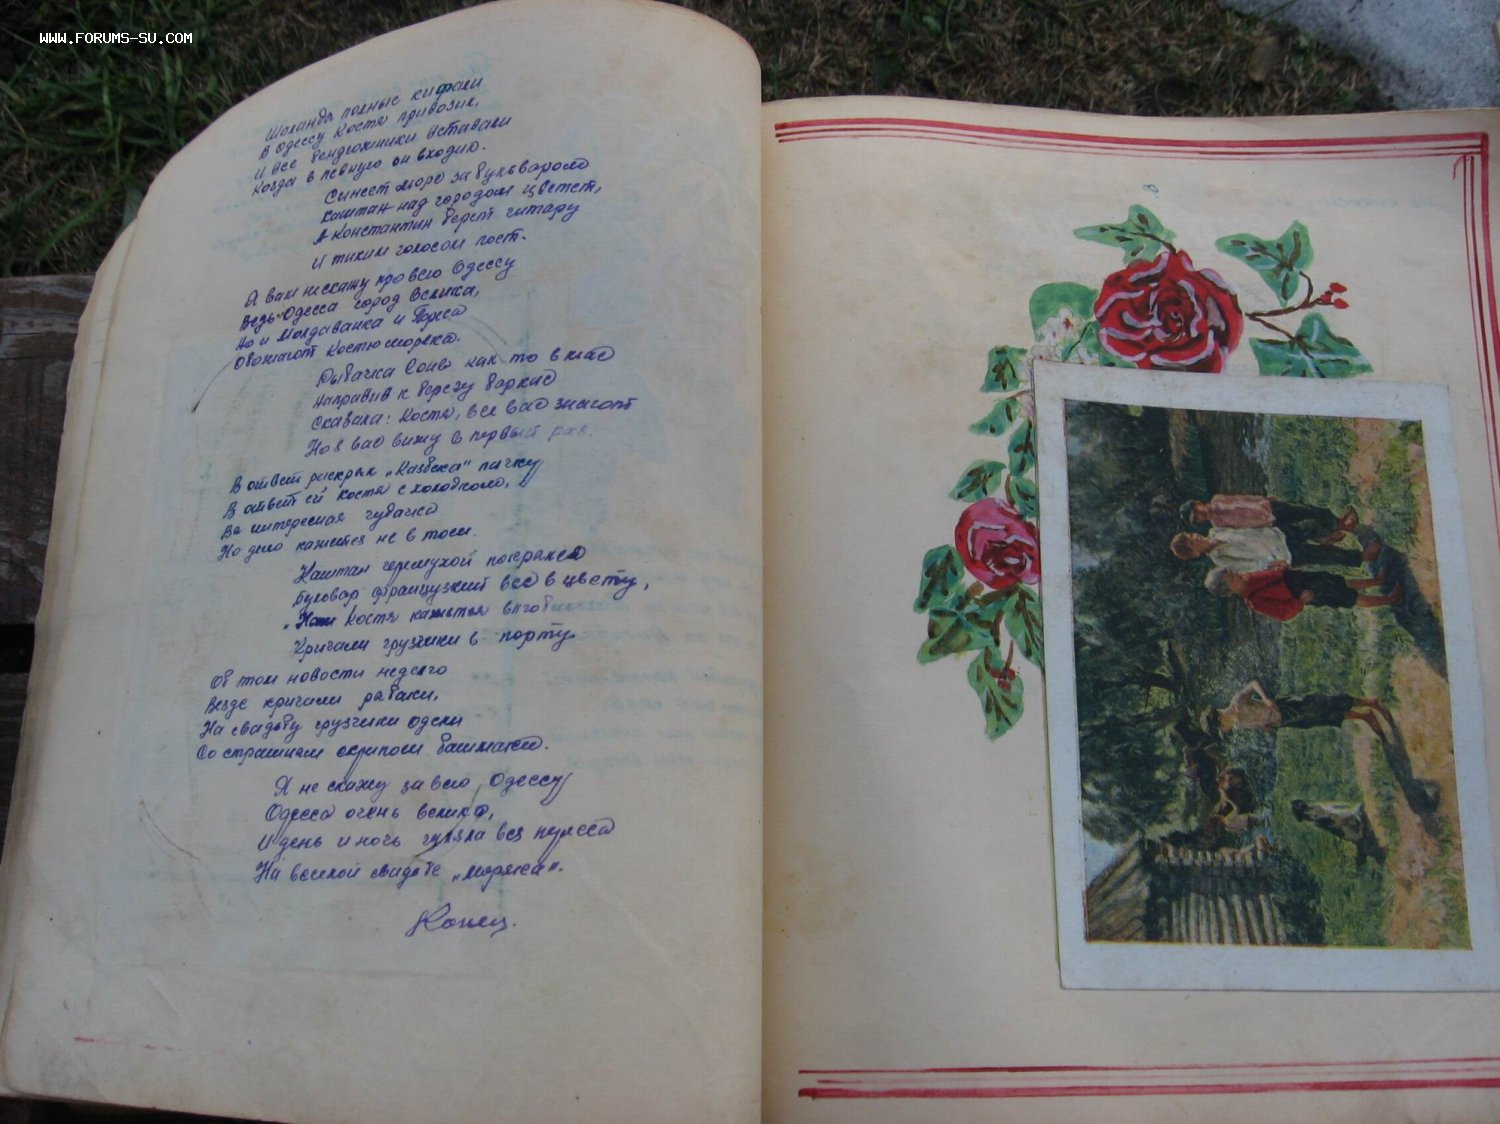 WWW.FORUMS-SU.COM
Шаланды полные кифали
В Одессу Костя привозил,
И все бендюжники вставали
Когда в певную он входил.
Синеет море за бульваром
Каштан над городом цветет,
А Константин берет гитару
И тихим голосом поет.
Я вам не скажу про всю Одессу
Ведь Одесса город велика,
Но и Молдаванка и Переса
Обожают Костю моряка.
Рыбачка Соня как то в мае
Направив к берегу баркас
Сказала: Костя, все вас знают
Но я вас вижу в первый раз.
В ответ раскрыл „Казбека" пачку
В ответ ей Костя с холодком,
Вы интересная чудачка
Но дело кажется не в том.
Каштан черемухой покрылся
Бульвар французкий весь в цвету,
Наш Костя кажется влюбился
Кричали грузчики в порту
Об том новости неделю
Везде кричали рыбаки,
На свадьбу грузчики одели
Со страшным скрипом башмаки.
Я не скажу за всю Одессу
Одесса очень велика,
И день и ночь гуляла вся пересса
На веселой свадьбе „моряка".
Конец.